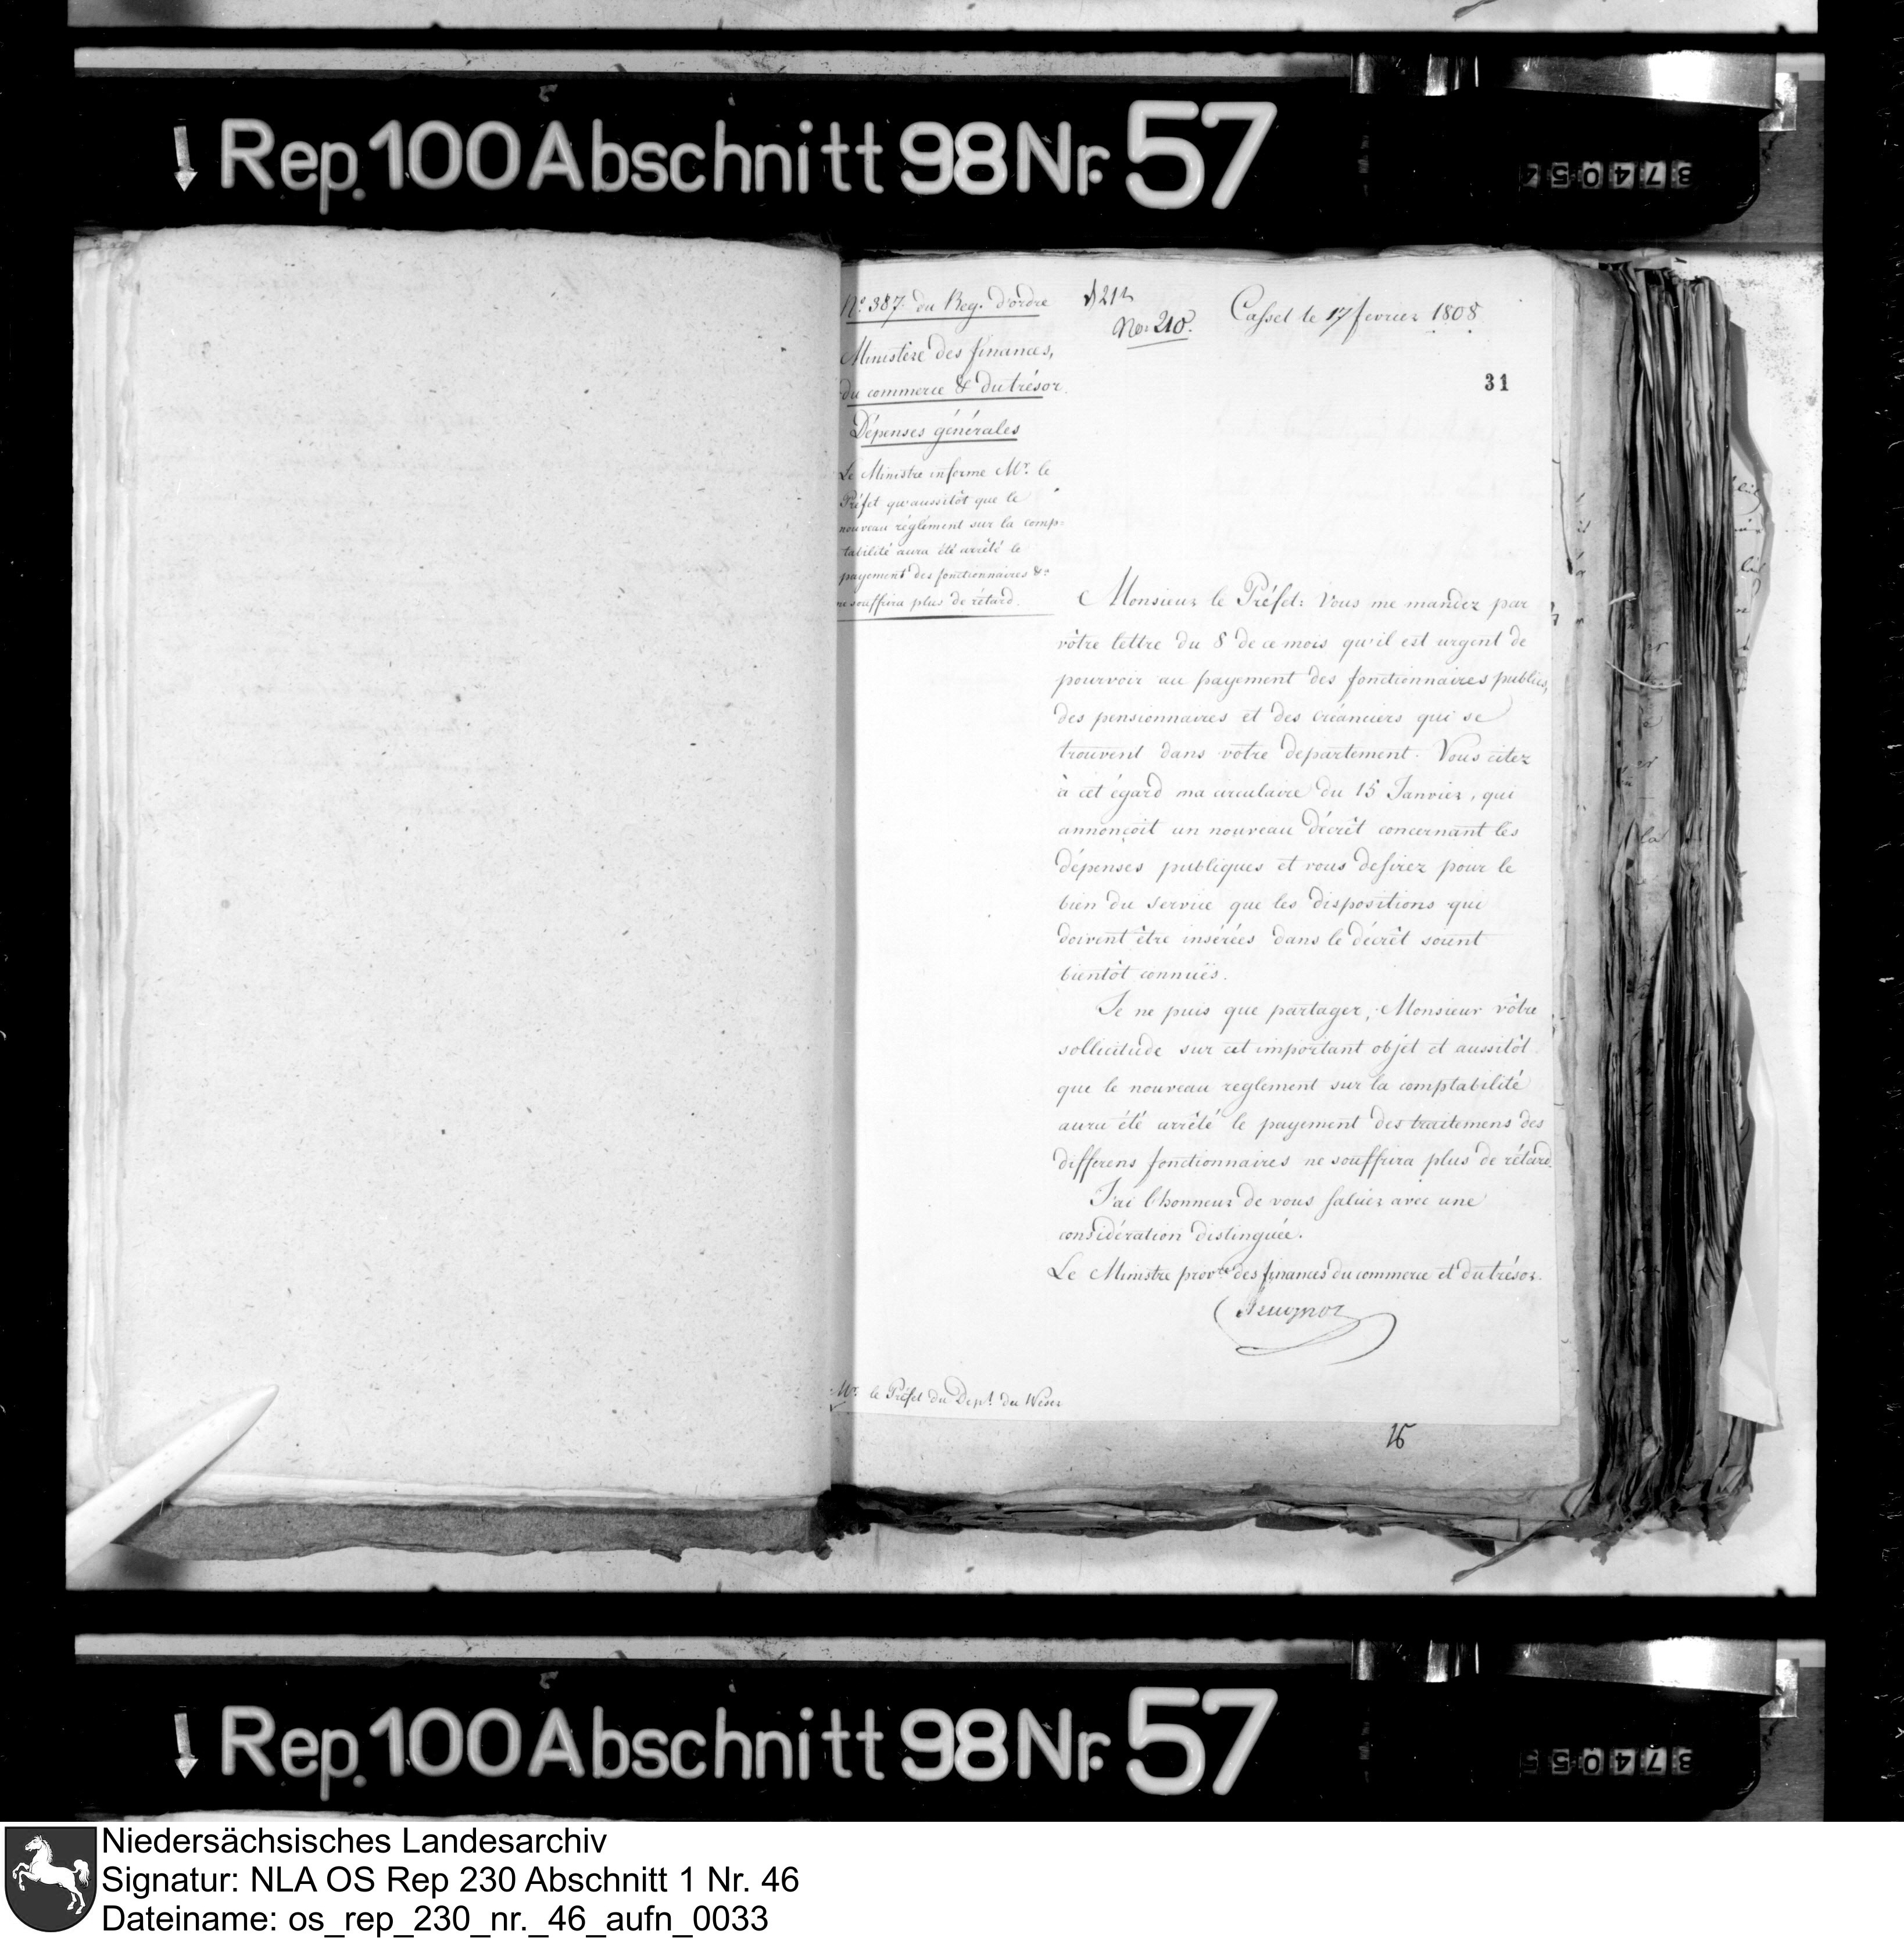 Rep. 100 Abschnitt 98 Nr. 57
No. 387. du Reg. d'ordre
Ministère des finances,
du commerce & du trésor.
Dépenses générales
Le Ministre informe Mr. le
Préfet qu'aussitôt que le
nouveau réglement sur la comp-
tabilité aura été arrêté le
payement des fonctionnaires &c
ne souffrira plus de rétard.
No. 210.
Cassel le 17 fevrier 1808.
31
Monsieur le Préfet: Vous me mandez par
vôtre lettre du 8 de ce mois qu'il est urgent de
pourvoir au payement des fonctionnaires publics,
des pensionnaires et des créanciers qui se
trouvent dans votre departement. Vous citez
à cet égard ma circulaire du 15 Janvier, qui
annonçoit un nouveau décrêt concernant les
dépenses publiques et vous desirez pour le
bien du service que les dispositions qui
doivent être insérées dans le décrêt soient
bientôt connuës.
Je ne puis que partager, Monsieur vôtre
sollicitude sur cet important objet et aussitôt
que le nouveau reglement sur la comptabilité
aura été arrêté le payement des traitemens des
differens fonctionnaires ne souffrira plus de rétard.
J'ai l'honneur de vous saluer avec une
considération distinguée.
Le Ministre provre des finances du commerce et du trésor.
Beugnot
Mr. le Préfet du Dept. du Weser
16
Rep. 100 Abschnitt 98 Nr. 57
Niedersächsisches Landesarchiv
Signatur: NLA OS Rep 230 Abschnitt 1 Nr. 46
Dateiname: os_rep_230_nr._46_aufn_0033